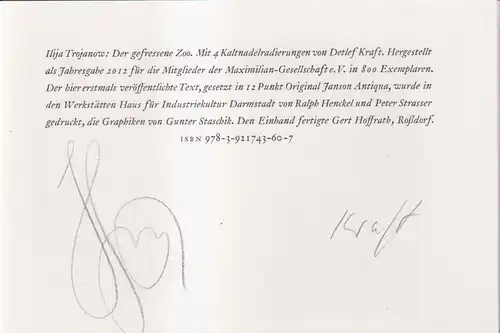 Ilija Trojanow: Der gefressene Zoo. Mit 4 Kaltnadelradierungen von Detlef Kraft. Hergestellt
als Jahresgabe 2012 für die Mitglieder der Maximilian-Gesellschaft e.V. in 800 Exemplaren.
Der hier erstmals veröffentlichte Text, gesetzt in 12 Punkt Original Janson Antiqua, wurde in
den Werkstätten Haus für Industriekultur Darmstadt von Ralph Henckel und Peter Strasser
gedruckt, die Graphiken von Gunter Staschik. Den Einband fertigte Gert Hoffrath, Roßdorf.
ISBN 978-3-921743-60-7
Kraft